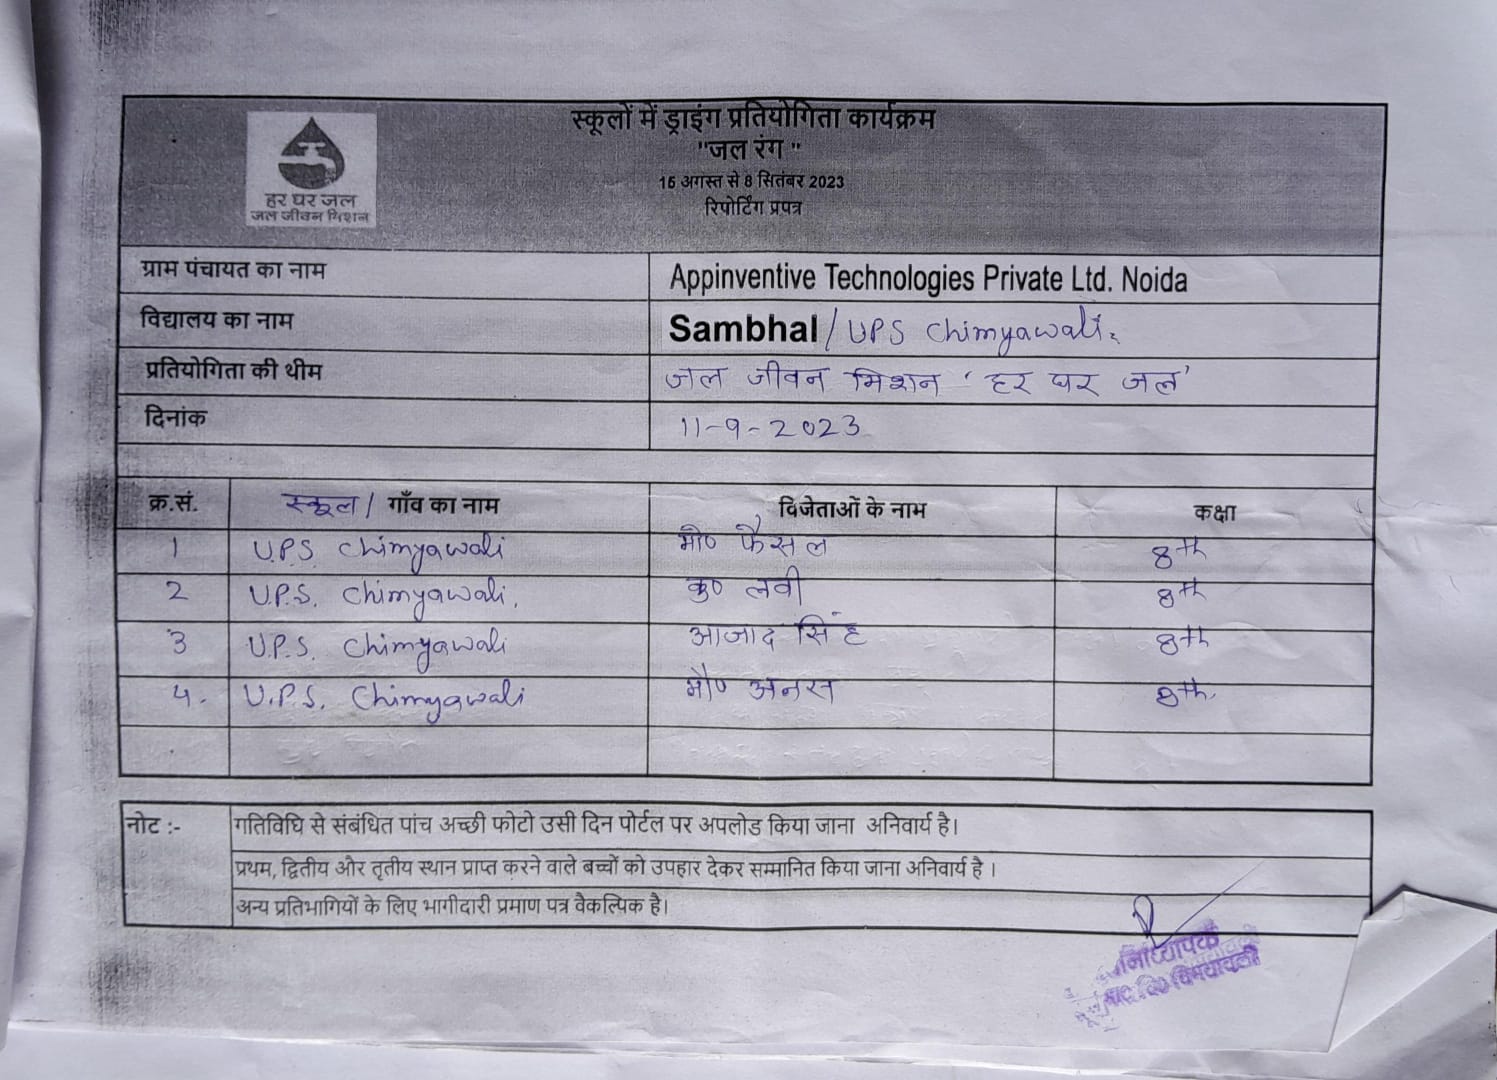 हर घर जल
जल जीवन मिशन
स्कूलों में ड्राइंग प्रतियोगिता कार्यक्रम
"जल रंग "
15 अगस्त से 8 सितंबर 2023
रिपोर्टिंग प्रपत्र
ग्राम पंचायत का नाम Appinventive Technologies Private Ltd. Noida
विद्यालय का नाम Sambhal / UPS Chimyawali
प्रतियोगिता की थीम जल जीवन मिशन 'हर घर जल'
दिनांक 11-9-2023
क्र.सं. स्कूल / गाँव का नाम विजेताओं के नाम कक्षा
1 U.P.S. Chimyawali मो० फैसल 8th
2 U.P.S. Chimyawali. कु० लवी 8th
3 U.P.S. Chimyawali आजाद सिंह 8th
4. U.P.S. Chimyawali मौ० अनस 8th.
नोट :- गतिविधि से संबंधित पांच अच्छी फोटो उसी दिन पोर्टल पर अपलोड किया जाना अनिवार्य है।
प्रथम, द्वितीय और तृतीय स्थान प्राप्त करने वाले बच्चों को उपहार देकर सम्मानित किया जाना अनिवार्य है ।
अन्य प्रतिभागियों के लिए भागीदारी प्रमाण पत्र वैकल्पिक है।